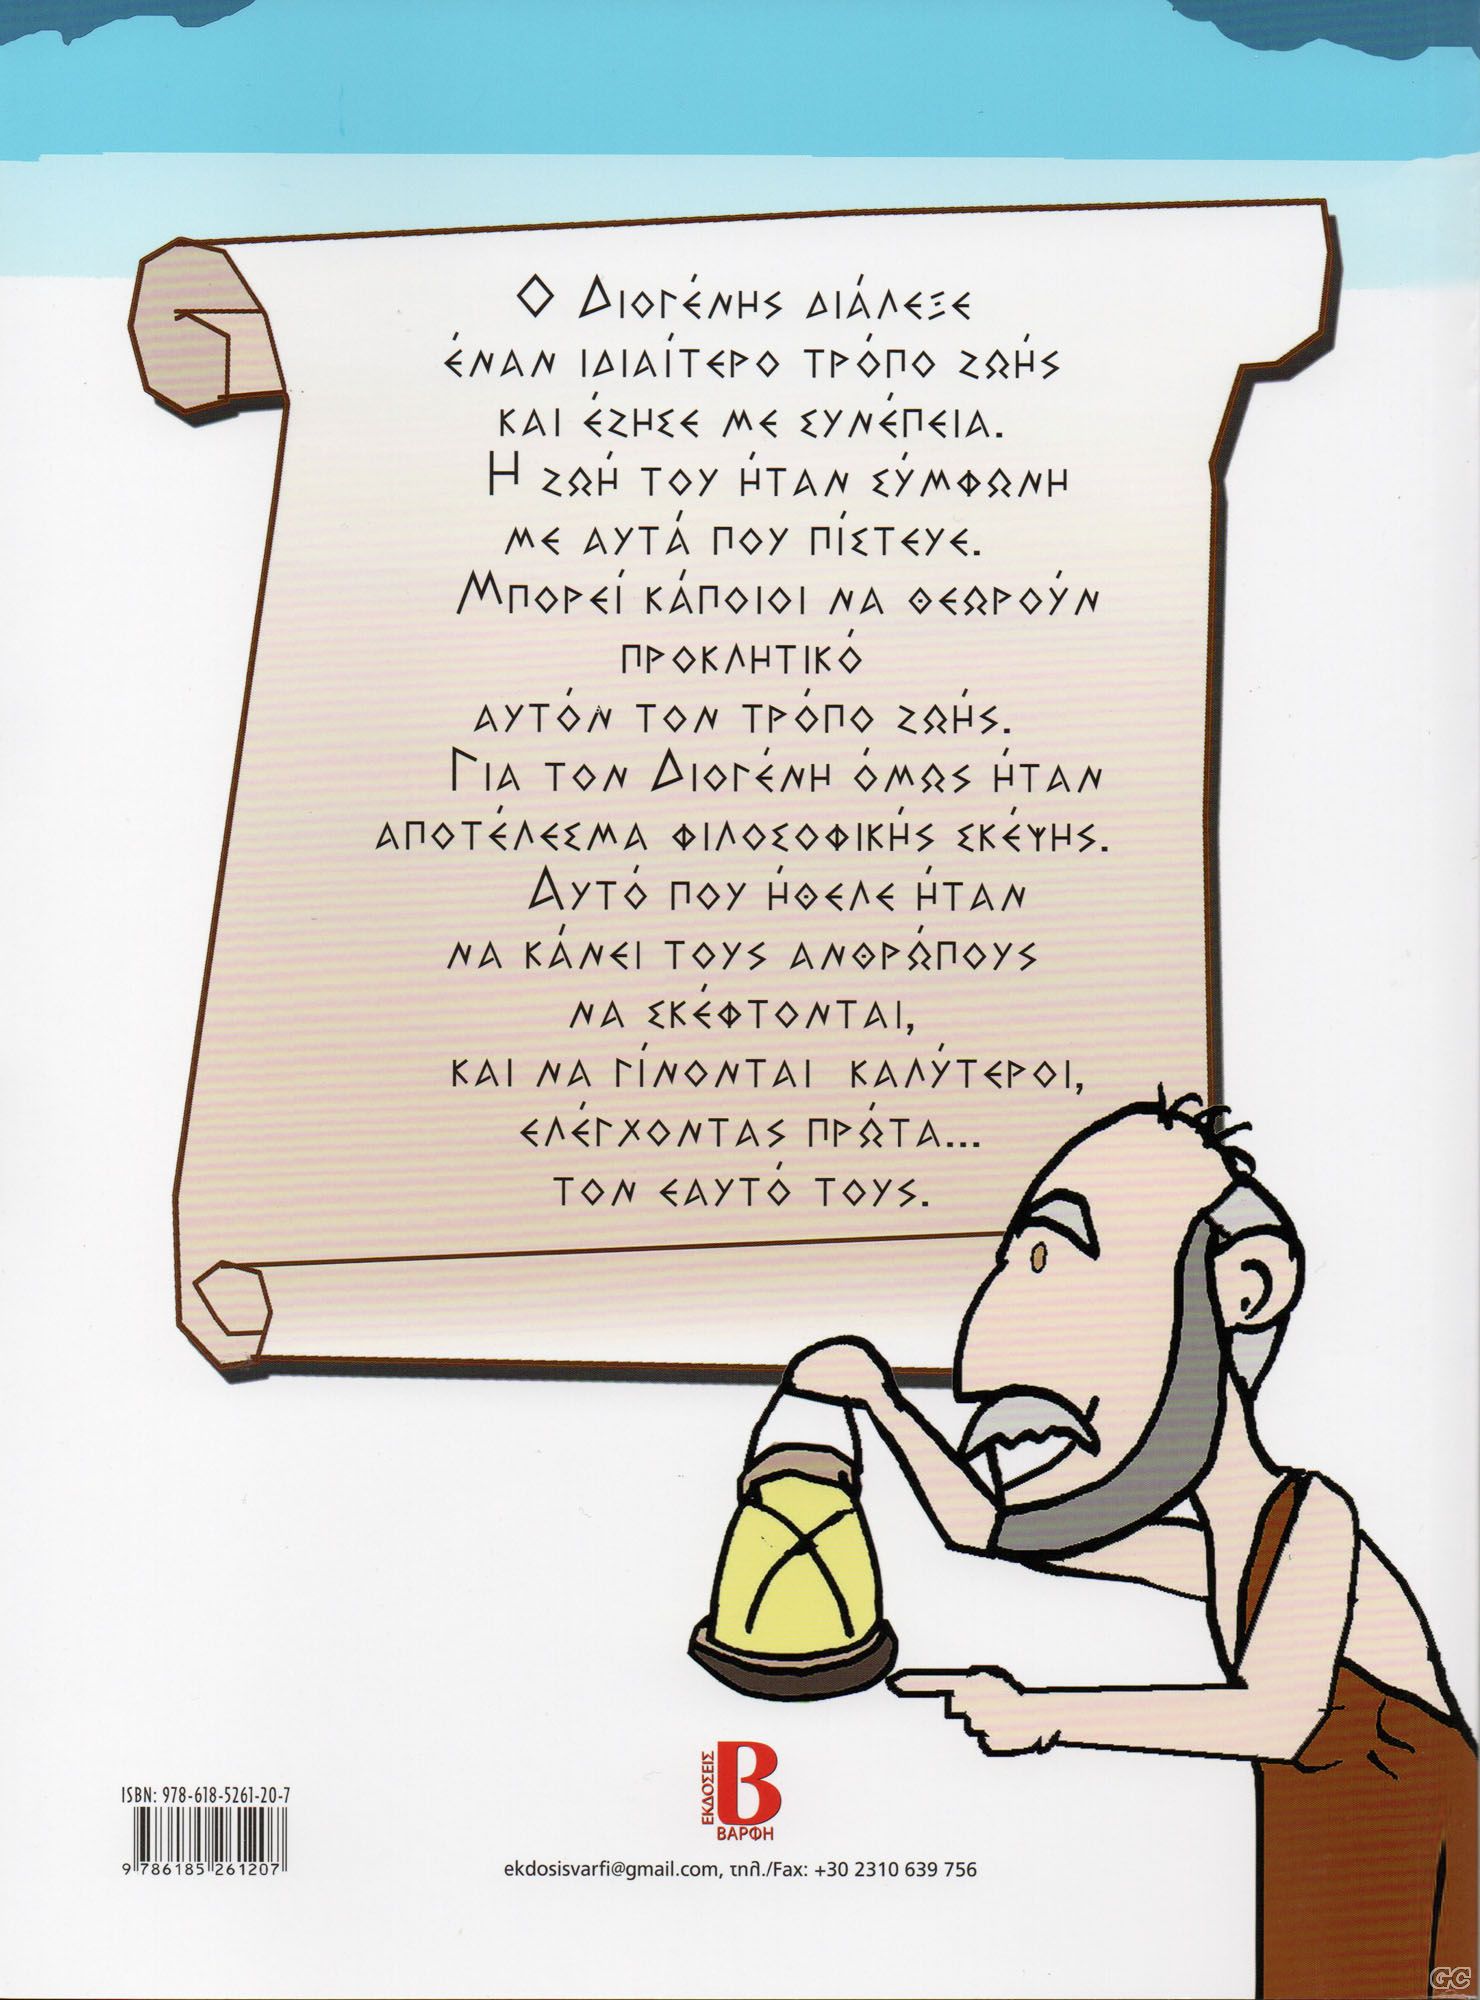 Ο Διογένης διάλεξε
έναν ιδιαίτερο τρόπο ζωής
και έζησε με συνέπεια.
Η ζωή του ήταν σύμφωνη
με αυτά που πίστευε.
Μπορεί κάποιοι να θεωρούν
προκλητικό
αυτόν τον τρόπο ζωής.
Για τον Διογένη όμως ήταν
αποτέλεσμα φιλοσοφικής σκέψης.
Αυτό που ήθελε ήταν
να κάνει τους ανθρώπους
να σκέφτονται,
και να γίνονται καλύτεροι,
ελέγχοντας πρώτα...
τον εαυτό τους.
ΕΚΔΟΣΕΙΣ
Β
ΒΑΡΦΗ
ekdosisvarfi@gmail.com, τηλ./Fax: +30 2310 639 756
ISBN: 978-618-5261-20-7
9 786185 261207
GC